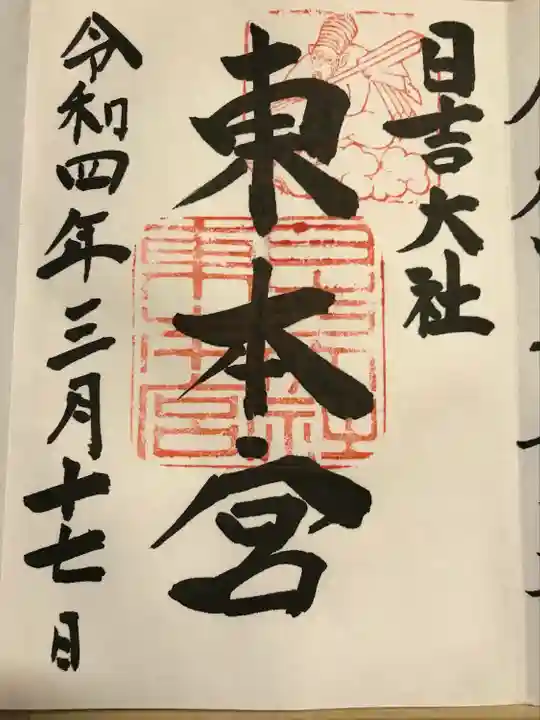 日吉大社
東本宮
令和四年三月十七日